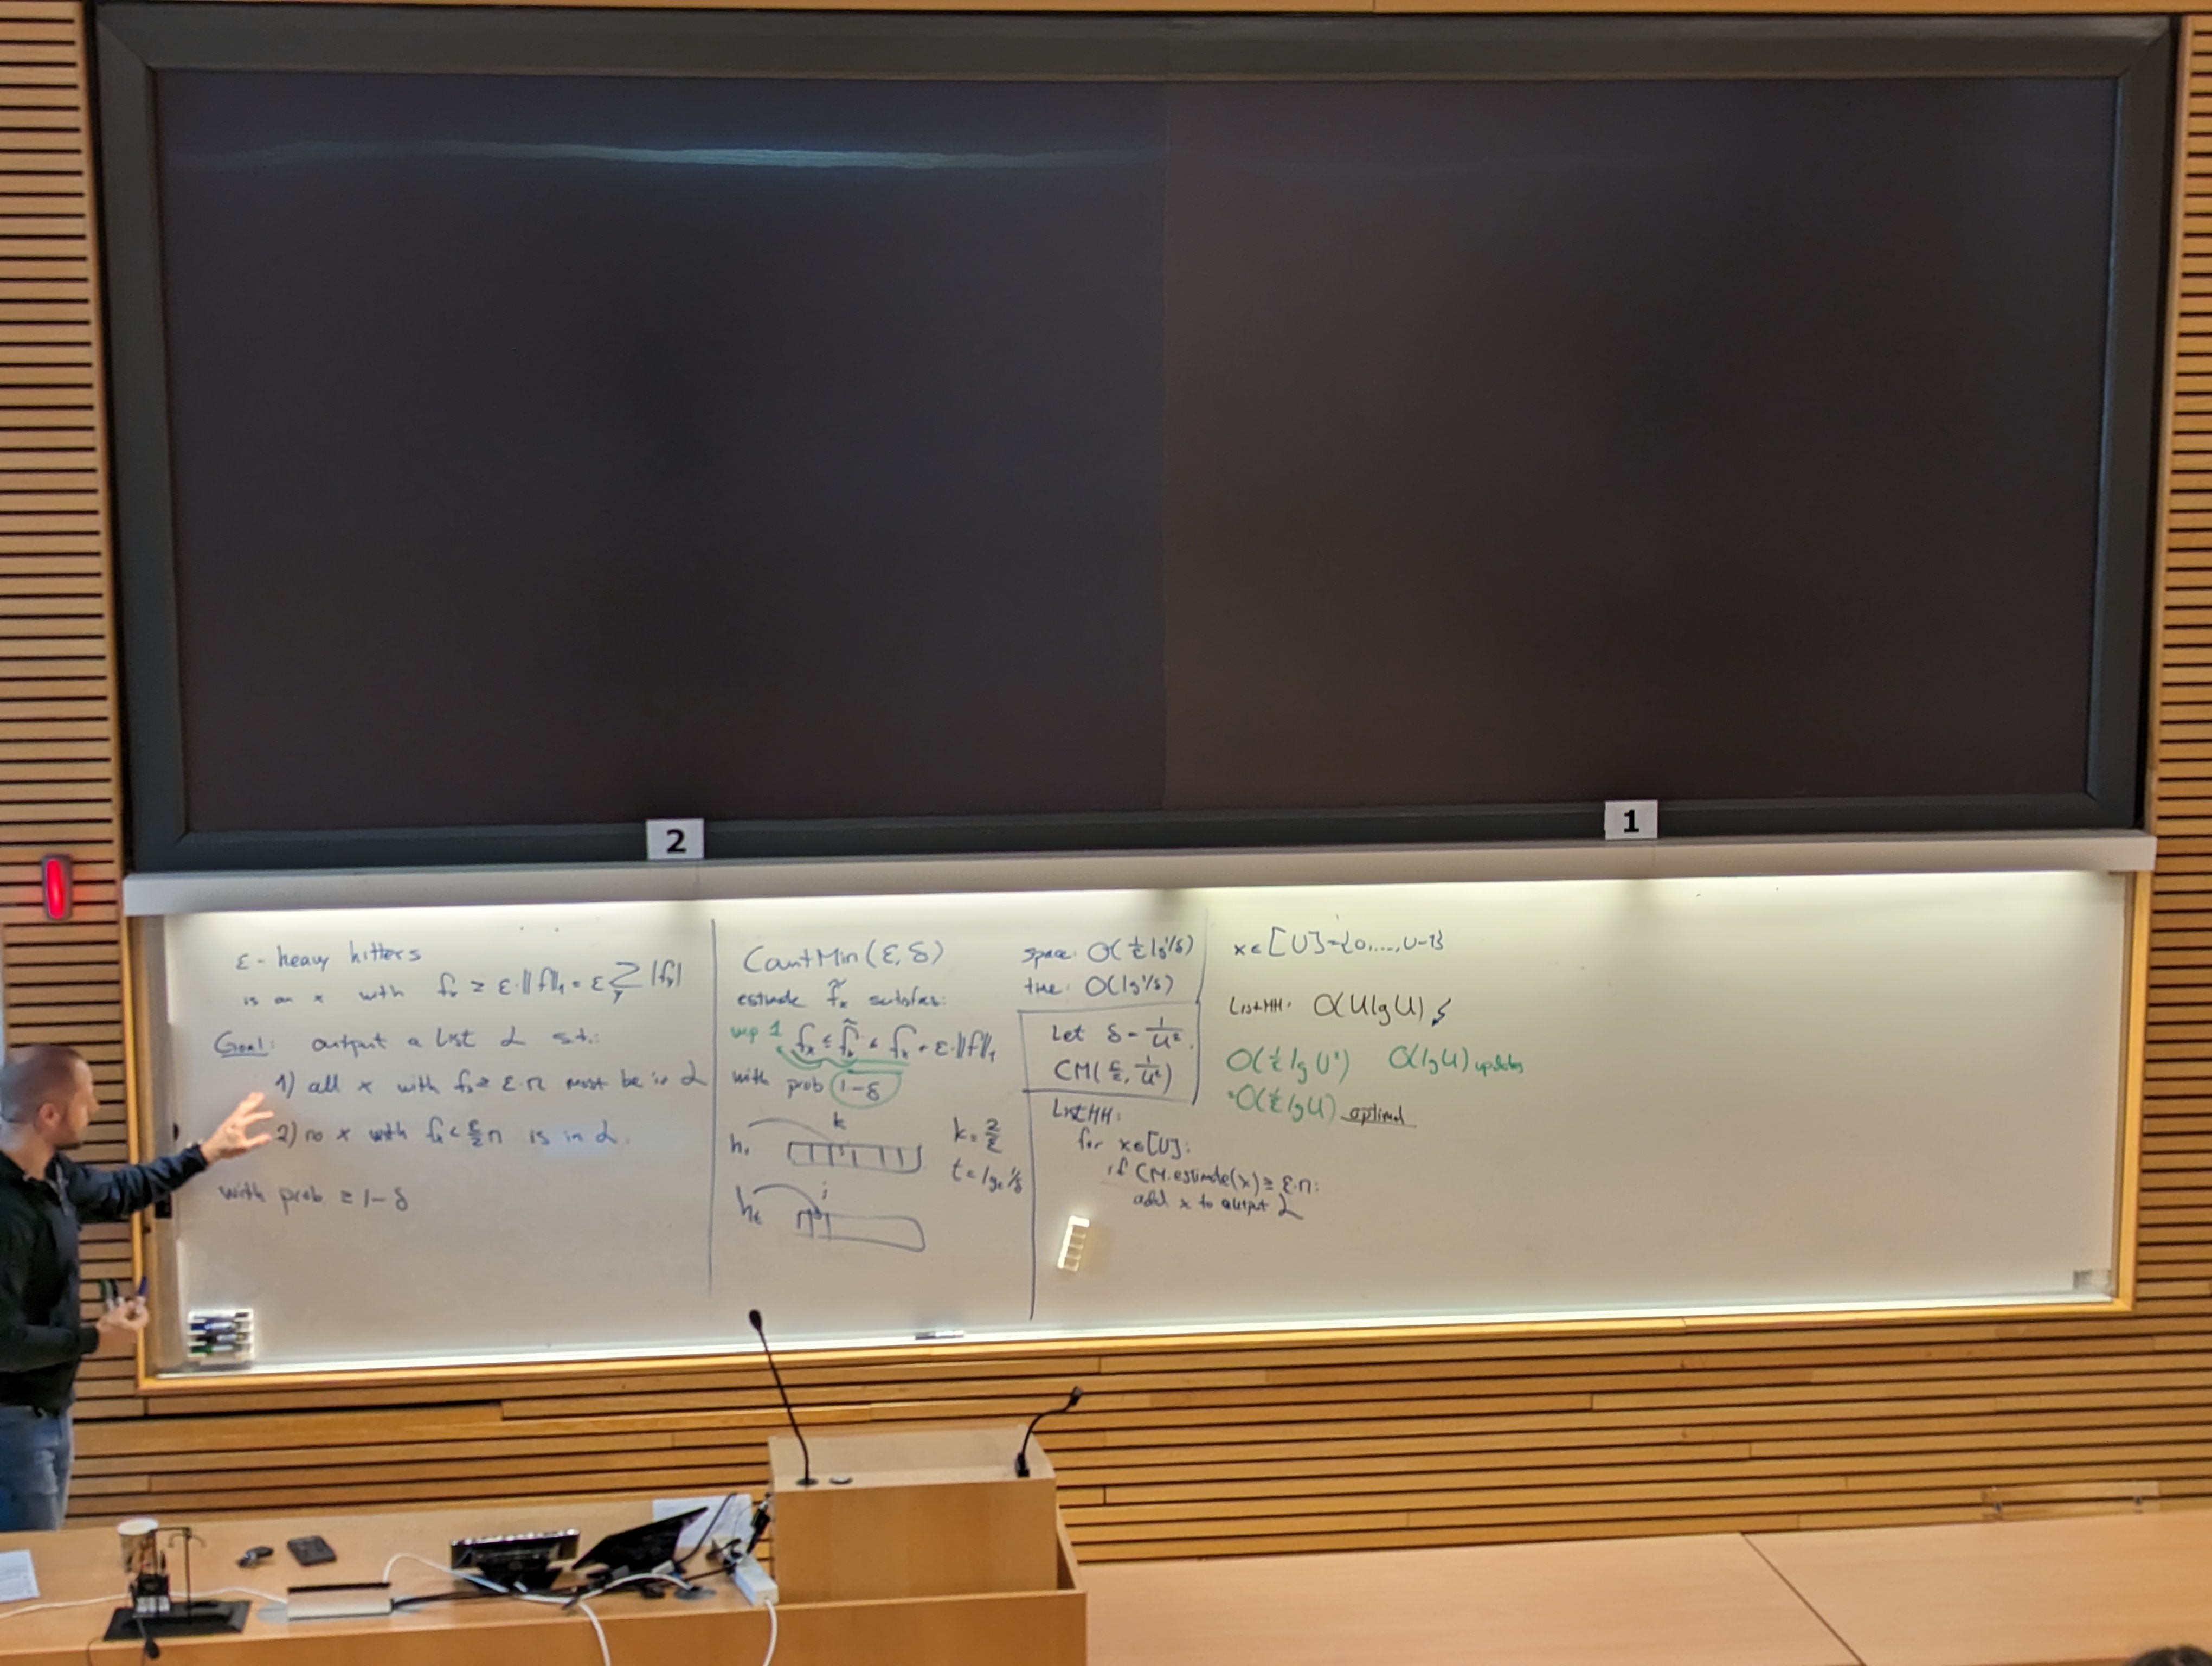 2
1
ε-heavy hitters
is an x with fₓ ≥ ε·||f||₁ = ε Σ_y |f_y|
Goal: output a list L s.t.:
1) all x with fₓ ≥ ε·n must be in L
2) no x with fₓ < ε/2 n is in L.
with prob ≥ 1-δ
CountMin(ε, δ)
estimate f̃ₓ satisfies:
wp 1 fₓ ≤ f̃ₓ ≤ fₓ + ε·||f||₁
with prob 1-δ
k
h₁
k = 2/ε
t = lg₂ 1/δ
j
hₜ
space: O(1/ε lg 1/δ)
time: O(lg 1/δ)
Let δ = 1/U².
CM(ε/2, 1/U²)
ListHH:
for x∈[U]:
if CM.estimate(x) ≥ ε·n:
add x to output L
x ∈ [U] = {0,...,U-1}
ListHH: O(U lg U)
O(1/ε lg U²) O(lg U) updates
O(1/ε lg U) optimal